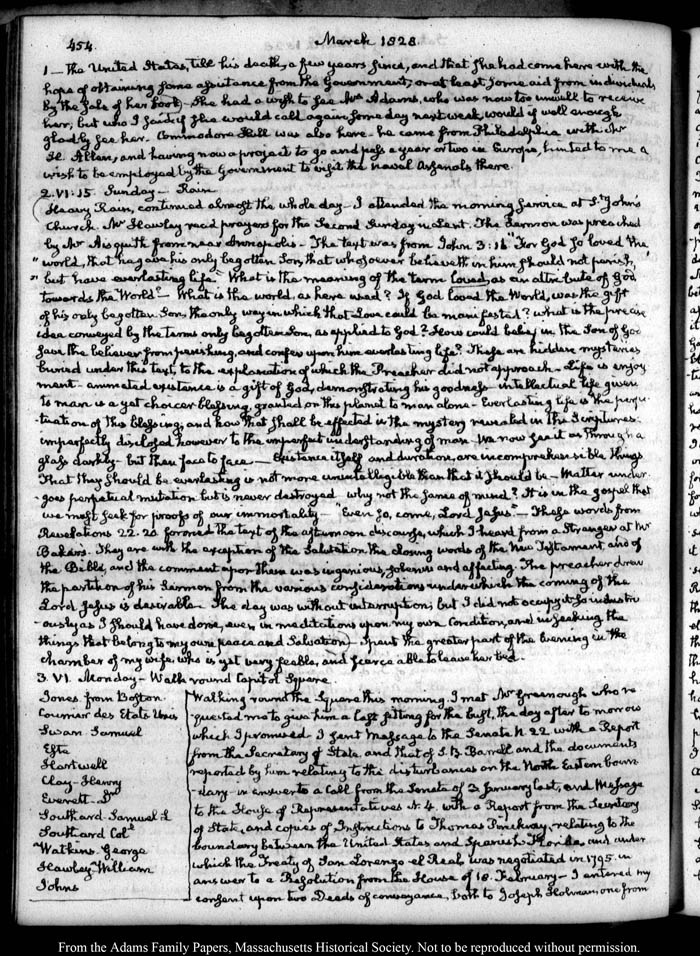 454.
March 1828.
1 — the United States, till his death, a few years since, and that she had come here with the
hope of obtaining some assistance from the Government, or at least, some aid from individuals
by the sale of her book — She had a wish to see Mrs Adams, who was now too unwell to receive
her, but who I said if she would call again some day next week, would if well enough
gladly see her. Commodore Hull was also here — he came from Philadelphia with Mr
H. Allen, and having now a project to go and pass a year or two in Europe, hinted to me a
wish to be employed by the Government to visit the naval Arsenals there.
2. VI: 15. Sunday — Rain
Heavy Rain, continued almost the whole day — I attended the morning service at St. John's
Church. Mr Hawley read prayers for the Second Sunday in Lent. The Sermon was preached
by Mr Aisquith from near Annapolis — The text was from John 3:16 "For God so loved the
" world, that he gave his only begotten Son, that whosoever believeth in him should not perish,
" but have everlasting life." What is the meaning of the term loved, as an attribute of God
towards the World? — What is the world, as here used? If God loved the World, was the gift
of his only begotten Son, the only way in which that Love could be manifested? what is the precise
idea conveyed by the terms only begotten Son, as applied to God? How could belief in the Son of God
save the believer from perishing, and confer upon him everlasting life? These are hidden mysteries
buried under this text, to the explanation of which the Preacher did not approach — Life is enjoy
ment — animated existence is a gift of God, demonstrating his goodness — intellectual life given
to man is a yet choicer blessing granted on this planet to man alone — Everlasting life is the perpe
tuation of this blessing, and how that shall be effected is the mystery revealed in the Scriptures —
imperfectly disclosed however to the imperfect understanding of man. We now see it as through a
glass darkly — but then face to face — Existence itself and duration, are incomprehensible things
That they should be everlasting is not more unintelligible than that it should be — Matter under
goes perpetual mutation but is never destroyed — why not the same of mind? It is in the gospel that
we must seek for proofs of our immortality — "Even so, come, Lord Jesus" — These words from
Revelations 22. 20 formed the text of the afternoon discourse, which I heard from a Stranger at Mr
Bakers. They are with the exception of the Salutation the closing words of the New Testament and of
the Bible, and the comment upon them was ingenious, solemn and affecting. The preacher drew
the partition of his Sermon from the various considerations under which the coming of the
Lord Jesus is desirable. The day was without interruption; but I did not occupy it so industri
ously as I should have done, even in meditations upon my own condition, and in seeking the
things that belong to my own peace and Salvation — I spent the greater part of the Evening in the
chamber of my wife, who is yet very feeble, and scarce able to leave her bed.
3. VI. Monday — Walk round Capitol Square.
Jones from Boston
Courrier des Etats Unis
Susan Samuel
Este
Hartwell
Clay — Henry
Everett — Dr
Southard — Samuel L
Southard Col.
Watkins. George
Hawley William
Johns
Walking round the Square this morning I met Mr Greenough who re
quested me to give him a last sitting for the bust, the day after to morrow
which I promised. I sent Message to the Senate N. 22 with a Report
from the Secretary of State and that of S. B. Barrell and the documents
reported by him relating to the disturbances on the North Eastern boun
dary — in answer to a Call from the Senate of 3 January last, and Message
to the House of Representatives N. 4. with a Report from the Secretary
of State, and copies of Instructions to Thomas Pinckney, relating to the
boundary between the United States and Spanish Florida and under
which the Treaty of San Lorenzo el Real, was negotiated in 1795. in
answer to a Resolution from the House of 18. February — I entered my
consent upon two Deeds of conveyance, both to Joseph Holman, one from
From the Adams Family Papers, Massachusetts Historical Society. Not to be reproduced without permission.